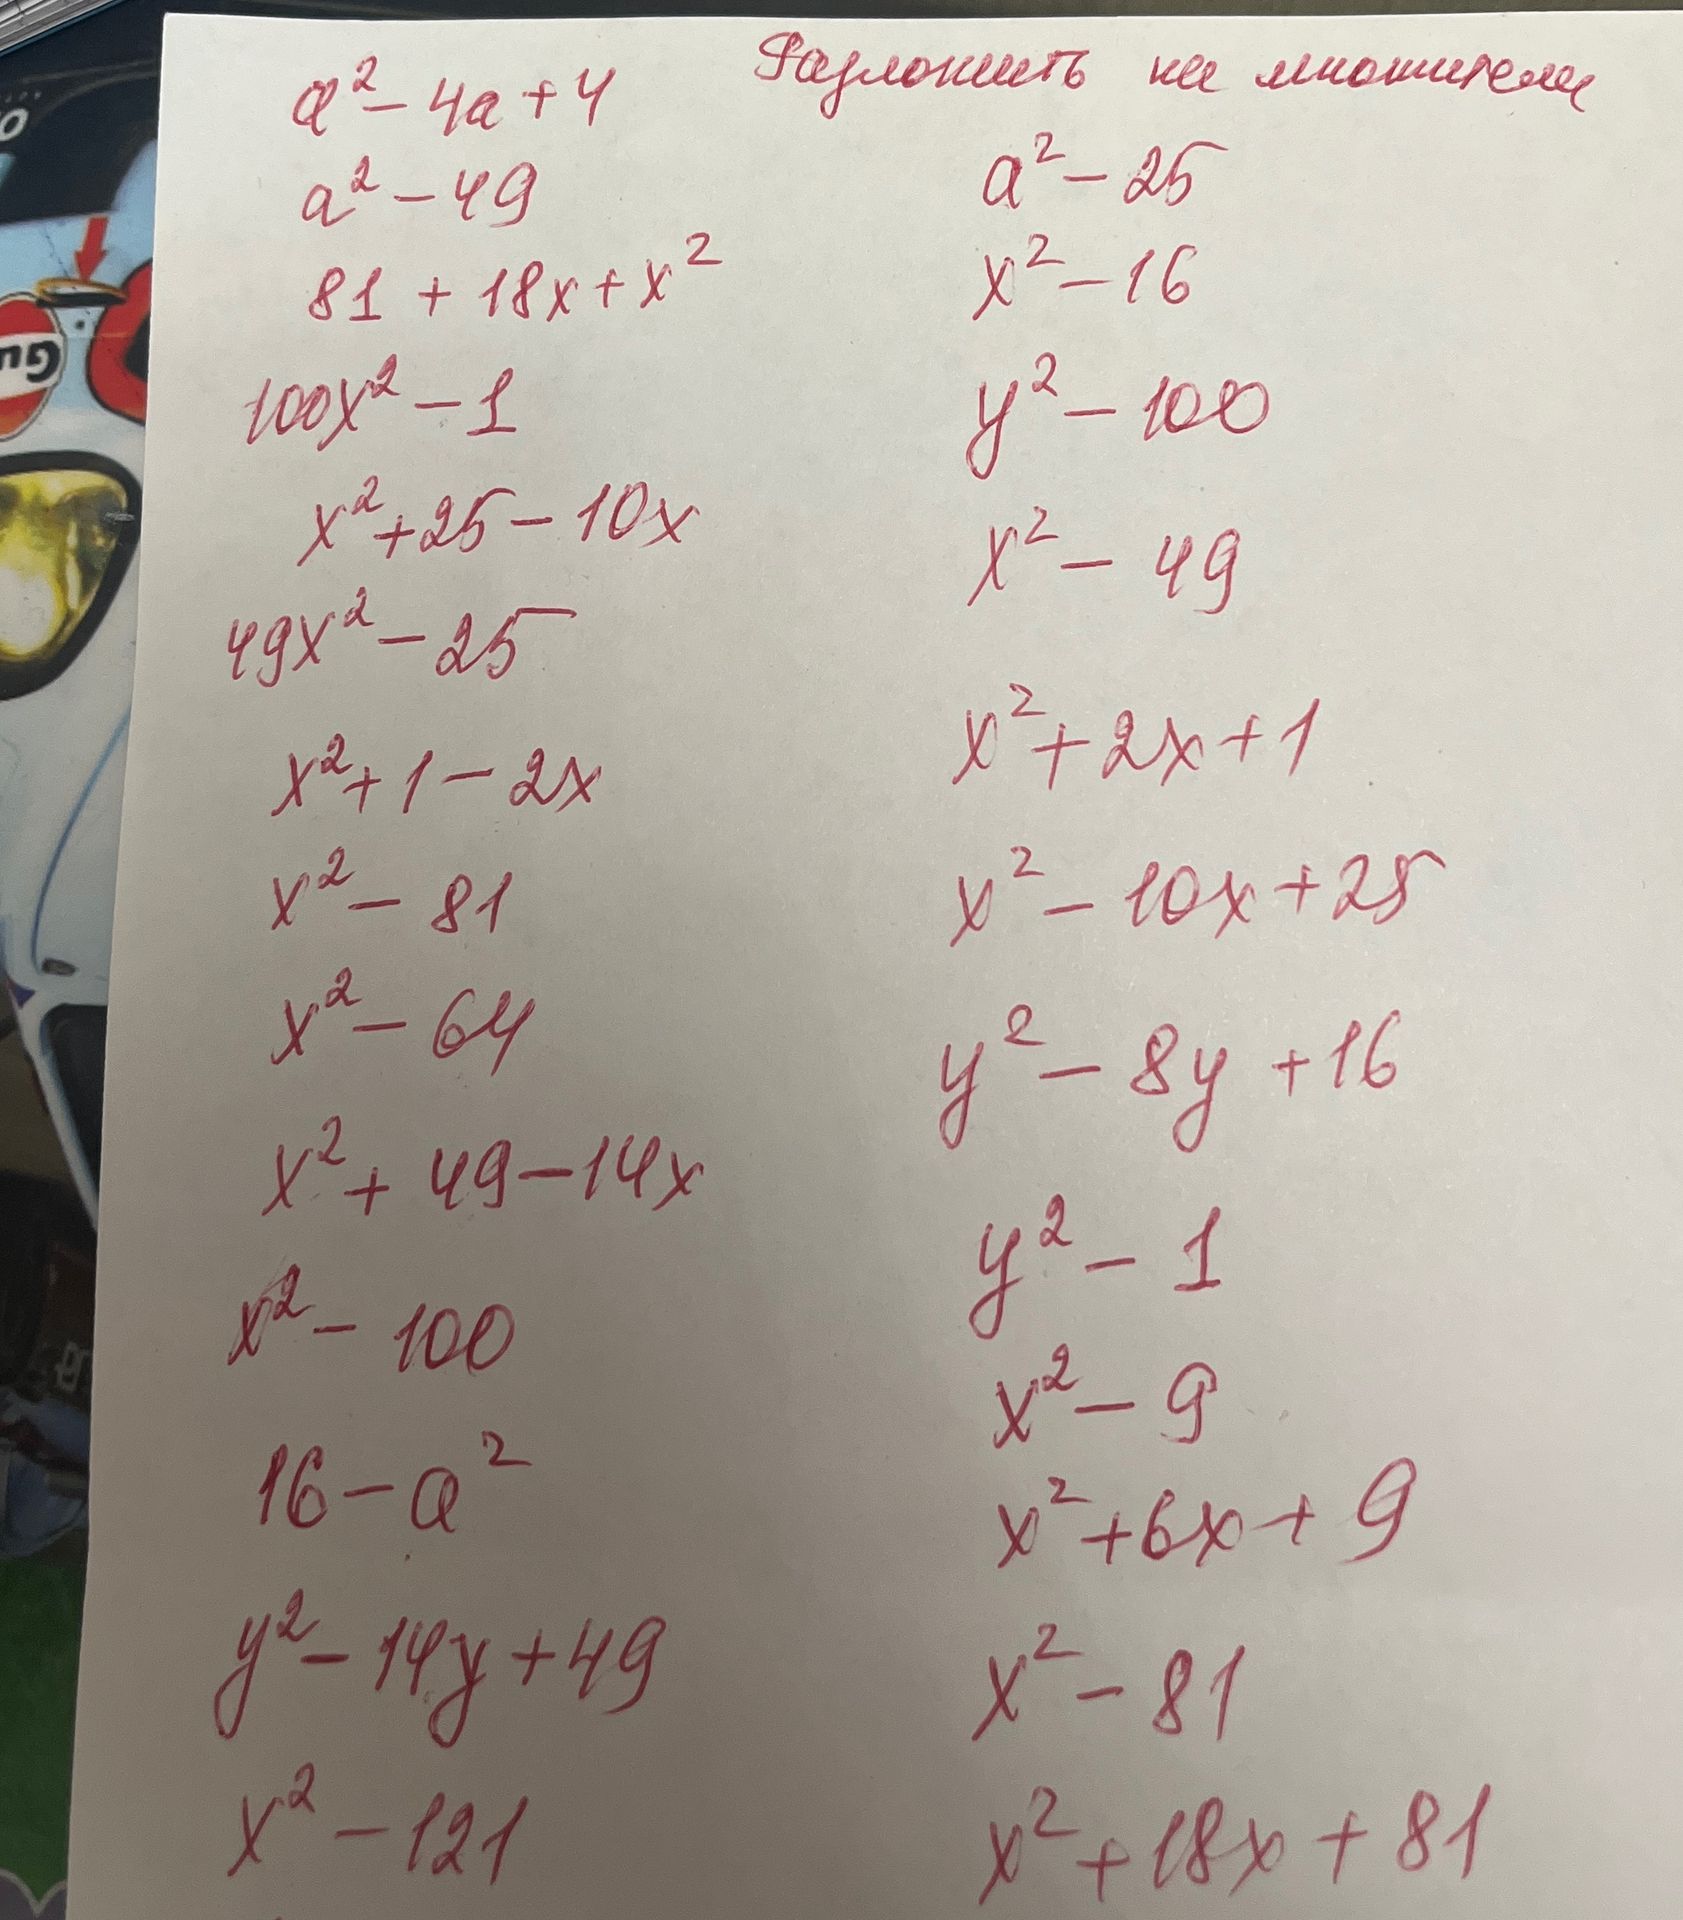 Разложить на множители
a² – 4a + 4
a² – 49
81 + 18x + x²
100x² – 1
x² + 25 – 10x
49x² – 25
x² + 1 – 2x
x² – 81
x² – 64
x² + 49 – 14x
x² – 100
16 – a²
y² – 14y + 49
x² – 121
a² – 25
x² – 16
y² – 100
x² – 49
x² + 2x + 1
x² – 10x + 25
y² – 8y + 16
y² – 1
x² – 9
x² + 6x + 9
x² – 81
x² + 18x + 81